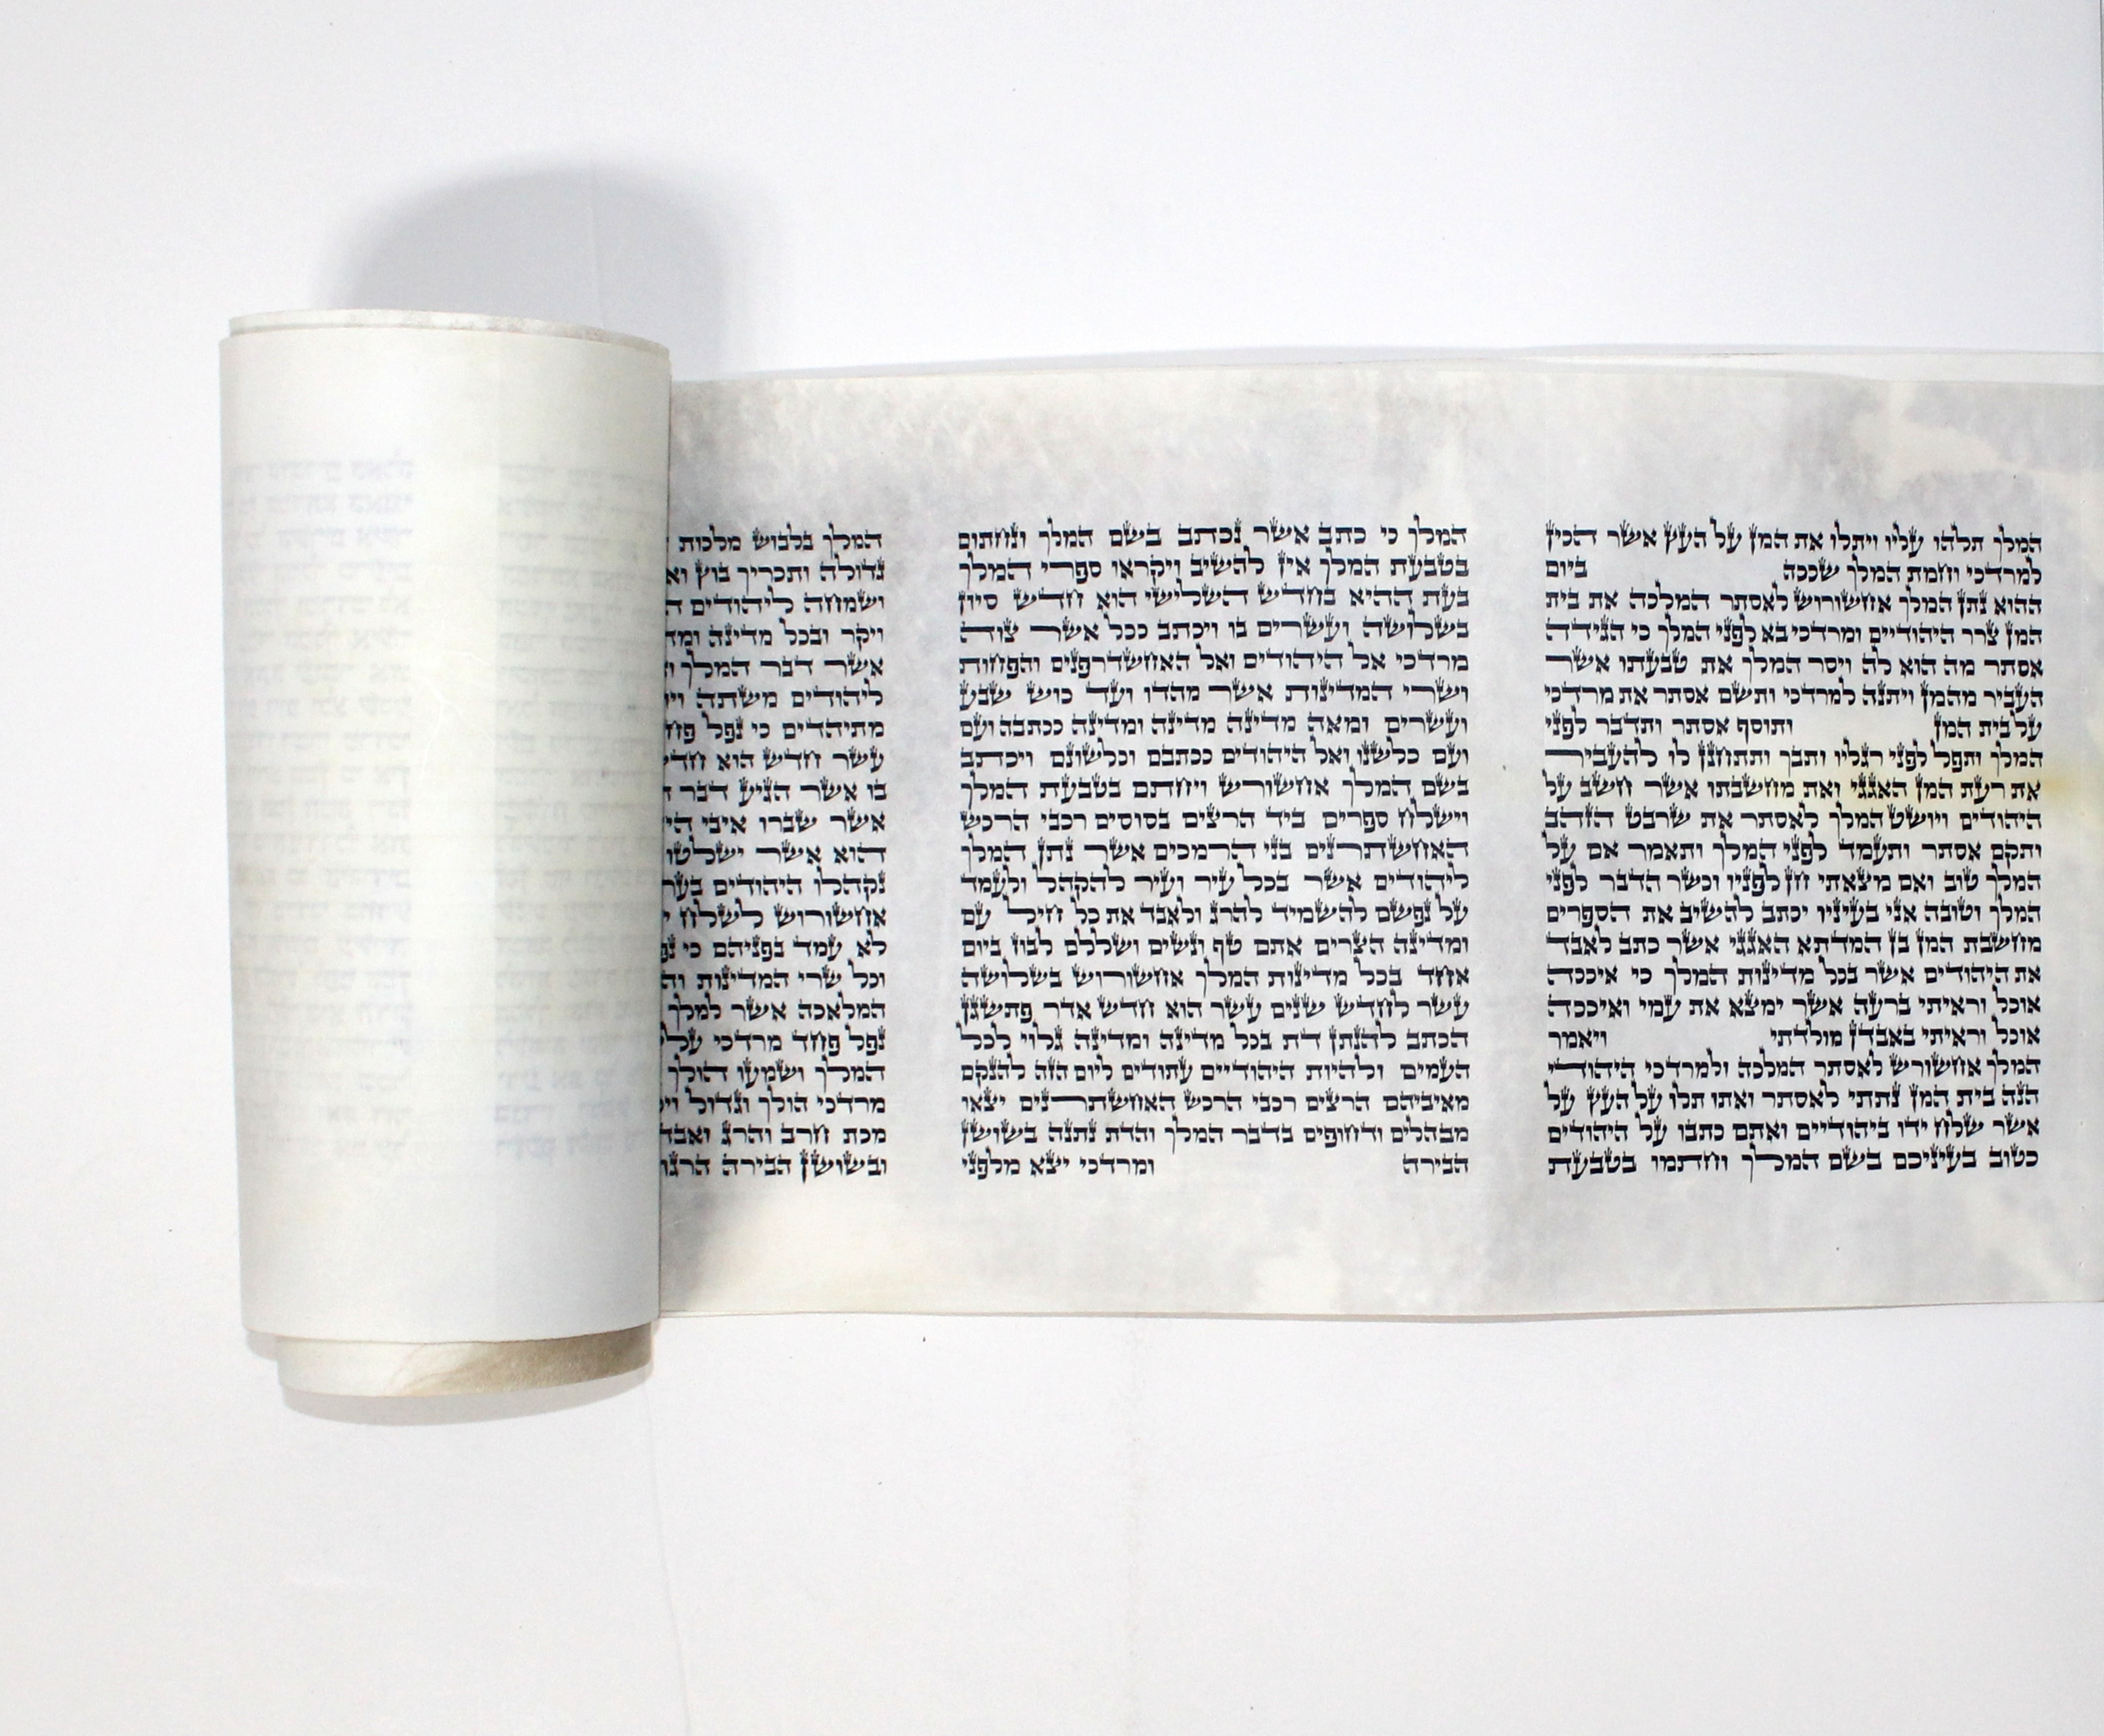 המלך תלהו עליו ויתלו את המן על העץ אשר הכין
למרדכי וחמת המלך שככה ביום
ההוא נתן המלך אחשורוש לאסתר המלכה את בית
המן צרר היהודיים ומרדכי בא לפני המלך כי הגידה
אסתר מה הוא לה ויסר המלך את טבעתו אשר
העביר מהמן ויתנה למרדכי ותשם אסתר את מרדכי
על בית המן ותוסף אסתר ותדבר לפני
המלך ותפל לפני רגליו ותבך ותתחנן לו להעביר
את רעת המן האגגי ואת מחשבתו אשר חשב על
היהודים ויושט המלך לאסתר את שרבט הזהב
ותקם אסתר ותעמד לפני המלך ותאמר אם על
המלך טוב ואם מצאתי חן לפניו וכשר הדבר לפני
המלך וטובה אני בעיניו יכתב להשיב את הספרים
מחשבת המן בן המדתא האגגי אשר כתב לאבד
את היהודים אשר בכל מדינות המלך כי איככה
אוכל וראיתי ברעה אשר ימצא את עמי ואיככה
אוכל וראיתי באבדן מולדתי ויאמר
המלך אחשורש לאסתר המלכה ולמרדכי היהודי
הנה בית המן נתתי לאסתר ואתו תלו על העץ על
אשר שלח ידו ביהודיים ואתם כתבו על היהודים
כטוב בעיניכם בשם המלך וחתמו בטבעת
המלך כי כתב אשר נכתב בשם המלך ונחתום
בטבעת המלך אין להשיב ויקראו ספרי המלך
בעת ההיא בחדש השלישי הוא חדש סיון
בשלושה ועשרים בו ויכתב ככל אשר צוה
מרדכי אל היהודים ואל האחשדרפנים והפחות
ושרי המדינות אשר מהדו ועד כוש שבע
ועשרים ומאה מדינה מדינה ומדינה ככתבה ועם
ועם כלשנו ואל היהודים ככתבם וכלשונם ויכתב
בשם המלך אחשורש ויחתם בטבעת המלך
וישלח ספרים ביד הרצים בסוסים רכבי הרכש
האחשתרנים בני הרמכים אשר נתן המלך
ליהודים אשר בכל עיר ועיר להקהל ולעמד
על נפשם להשמיד להרג ולאבד את כל חיל עם
ומדינה הצרים אתם טף ונשים ושללם לבוז ביום
אחד בכל מדינות המלך אחשורוש בשלושה
עשר לחדש שנים עשר הוא חדש אדר פתשגן
הכתב להנתן דת בכל מדינה ומדינה גלוי לכל
העמים ולהיות היהודיים עתודים ליום הזה להנקם
מאיביהם הרצים רכבי הרכש האחשתרנים יצאו
מבהלים ודחופים בדבר המלך והדת נתנה בשושן
הבירה ומרדכי יצא מלפני
המלך בלבוש מלכות
גדולה ותכריך בוץ
ושמחה ליהודים
ויקר ובכל מדינה
אשר דבר המלך
ליהודים משתה
מתיהדים כי נפל
עשר חדש הוא
בו אשר הגיע דבר
אשר שברו איבי
הוא אשר ישלטו
נקהלו היהודים
אחשורוש לשלח
לא עמד בפניהם כי
וכל שרי המדינות
המלאכה אשר למלך
נפל פחד מרדכי
המלך ושמעו הולך
מרדכי הולך וגדול
מכת חרב והרג
ובשושן הבירה הרגו